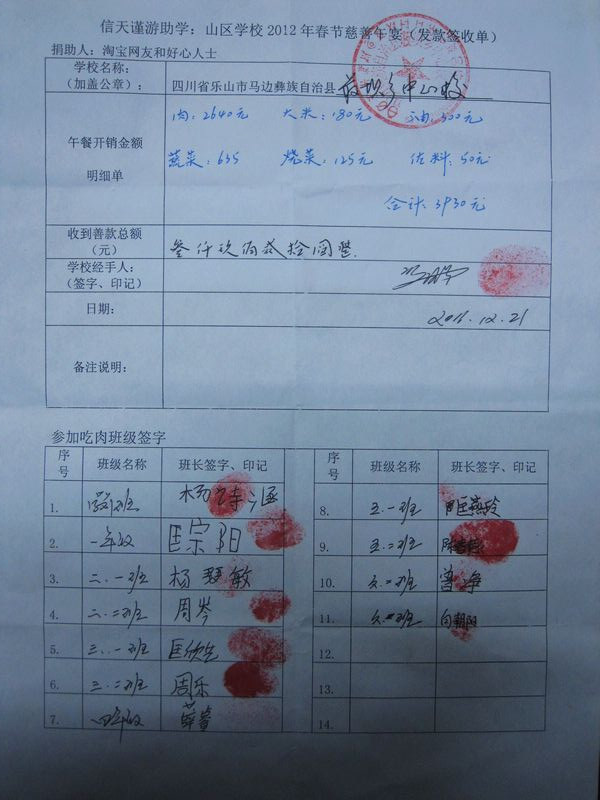 信天谨游助学：山区学校 2012 年春节慈善午宴（发款签收单）
捐助人：淘宝网友和好心人士
学校名称：
（加盖公章）：
四川省乐山市马边彝族自治县 中心校
午餐开销金额
明细单
肉：2640元 大米：180元 油：300元
蔬菜：635 烧菜：125元 佐料：50元
合计：3930元
收到善款总额
（元）
叁仟玖佰贰拾圆整
学校经手人：
（签字、印记）
日期：
2011.12.21
备注说明：
参加吃肉班级签字
序号 班级名称 班长签字、印记
1. 学前班 杨诗涵
2. 一年级 匡宗阳
3. 二.一班 杨 敏
4. 二.二班 周岑
5. 三.一班
6. 三.二班 周乐
7. 四年级 薛睿
序号 班级名称 班长签字、印记
8. 五.一班
9. 五.二班
10. 曾净
11. 向朝阳
12.
13.
14.